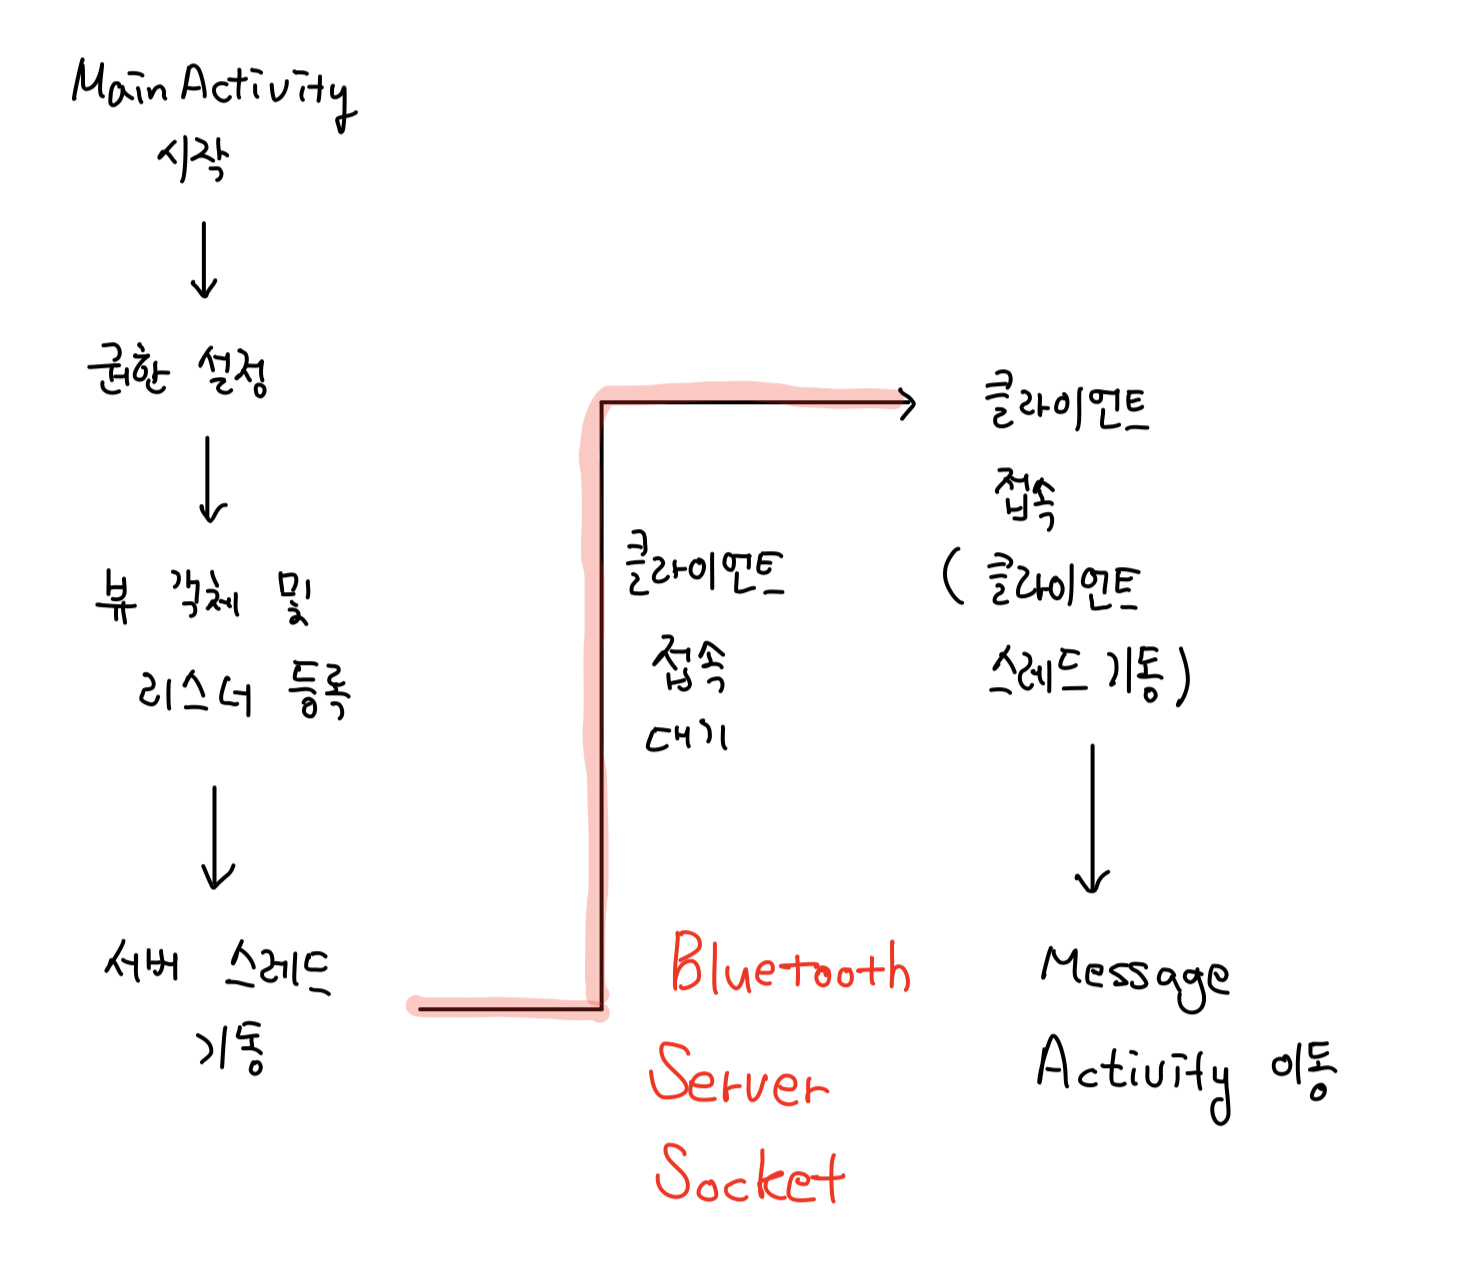 MainActivity
시작
권한 설정
뷰 객체 및
리스너 등록
서버 스레드
기동
클라이언트
접속
대기
Bluetooth
Server
Socket
클라이언트
접속
(클라이언트
스레드 기동)
Message
Activity 이동